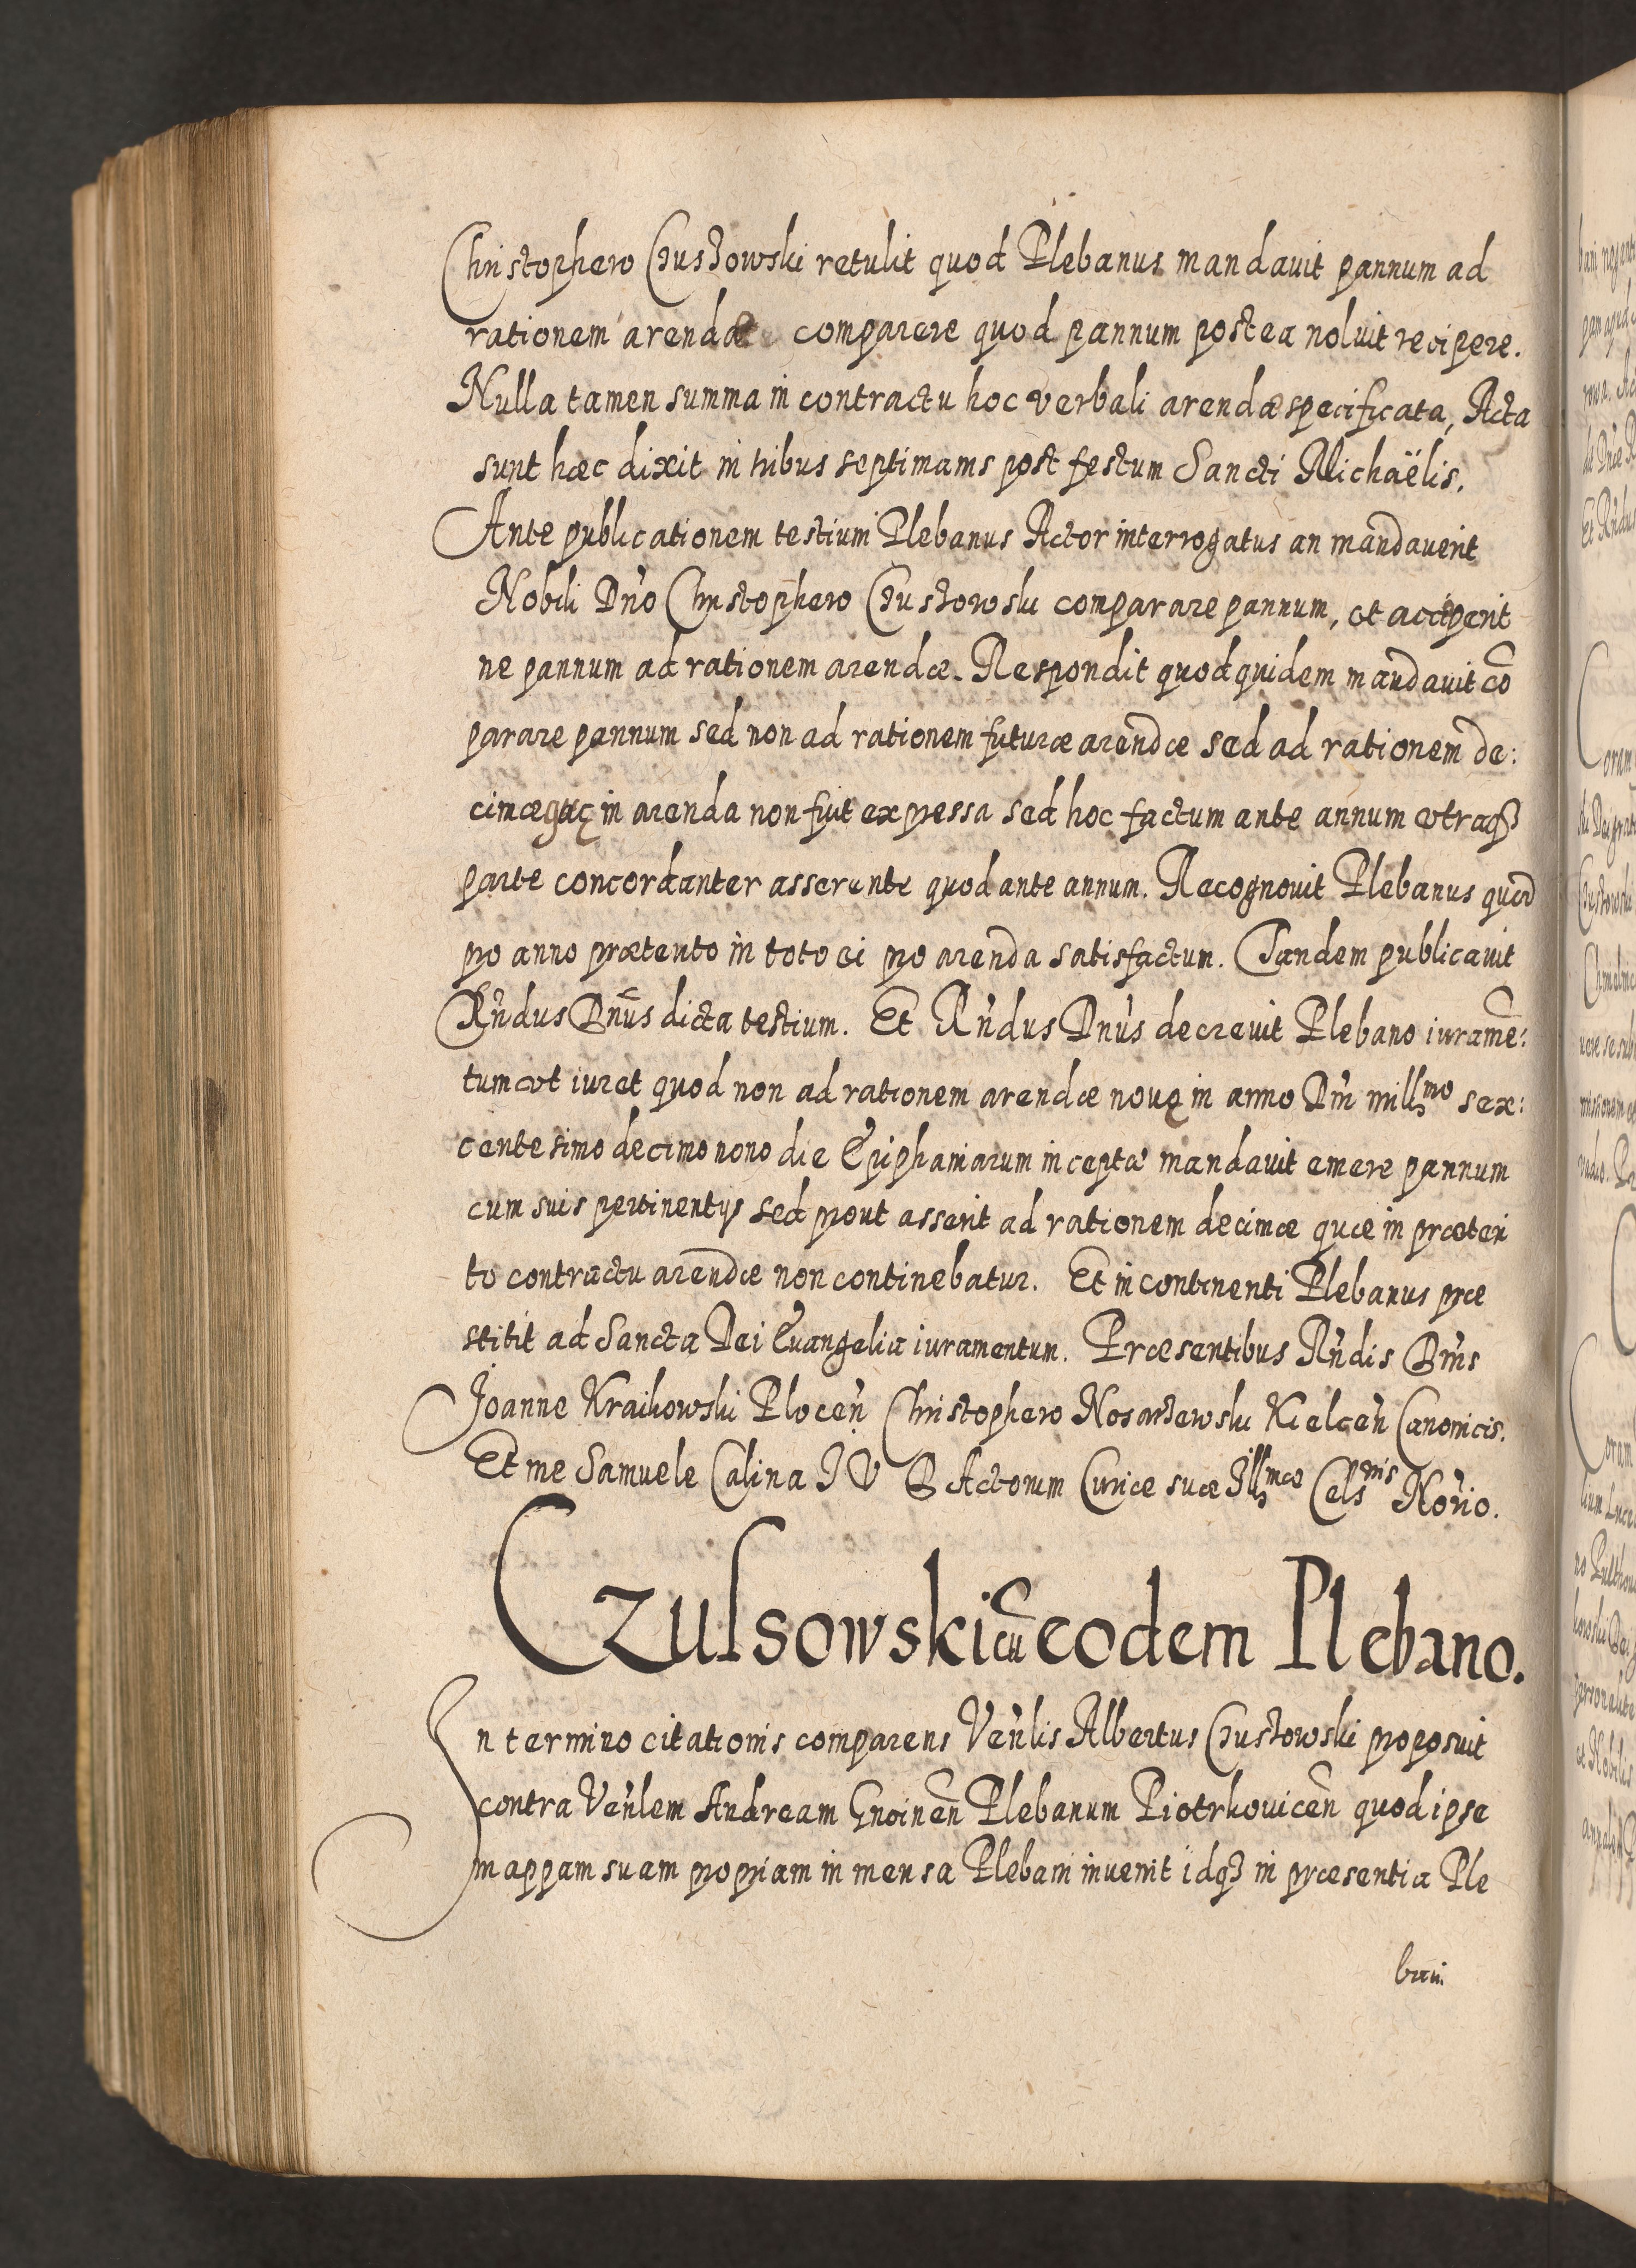 Christophero Czuszowski retulit quod Plebanus mandauit pannum ad
rationem arendæ comparere quod pannum postea noluit recipere.
Nulla tamen summa in contractu hoc verbali arendæ specificata, Acta
sunt hæc dixit in tribus septimanis post festum Sancti Michaëlis.
Ante publicationem testium Plebanus Actor interrogatus an mandauerit
Nobili Dn̄o Christophero Czuszowski comparare pannum, et acceperit
ne pannum ad rationem arendæ. Respondit quod quidem mandauit cō
parare pannum sed non ad rationem futuræ arendæ sed ad rationem de:
cimæ quę in arenda non fuit expressa sed hoc factum ante annum vtraqꝫ
parte concordanter asserente quod ante annum. Recognouit Plebanus quod
pro anno prætento in toto ei pro arenda satisfactum. Tandem publicauit
Rn̄dus Dn̄us dicta testium. Et Rn̄dus Dn̄us decreuit Plebano iuramē:
tum vt iuret quod non ad rationem arendæ nouę in anno Dn̄i mill̄mo sex:
centesimo decimo nono die Epiphaniarum inceptæ mandauit emere pannum
cum suis pertinentijs sed prout asserit ad rationem decimæ quæ in præteri
to contractu arendæ non continebatur. Et in continenti Plebanus præ
stitit ad Sancta Dei Euangelia iuramentum. Præsentibus Rn̄dis Dn̄is
Joanne Kraikowski Plocen̄ Christophero Kielcen̄ Canonicis.
Et me Samuele Calina I V D Actorum Curiæ suæ Illmæ Celsnis Not̄rio.
Czulsowski cū eodem Plebano.
In termino citationis comparens Ven̄lis Albertus Czuszowski proposuit
contra Ven̄lem Andream Gnoinen̄ Plebanum Piotrkouicen̄ quod ipse
mappam suam propriam in mensa Plebani inuenit idqꝫ in præsentia Ple
bani